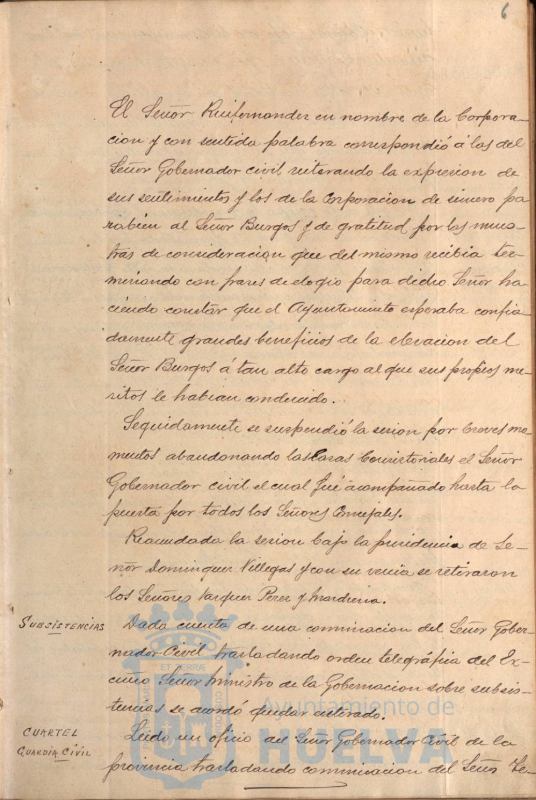 6
El Señor Ruifernandez en nombre de la Corpora-
cion y con sentida palabra correspondió á las del
Señor Gobernador civil reiterando la expresion de
sus sentimientos y los de la Corporacion de sincero pa
rabien al Señor Burgos y de gratitud por las mues-
tras de consideracion que del mismo recibia ter-
minando con frases de elogio para dicho Señor ha-
ciendo constar que el Ayuntamiento esperaba confia-
damente grandes beneficios de la elevacion del
Señor Burgos á tan alto cargo al que sus propios me-
ritos le habian conducido.
Seguidamente se suspendió la sesion por breves mo-
mentos abandonando las Casas Consistoriales el Señor
Gobernador civil el cual fué acompañado hasta la
puerta por todos los Señores Concejales.
Reanudada la sesion bajo la presidencia de Se-
ñor Dominguez Villegas y con su venia se retiraron
los Señores Vazquez Perez y
SUBSISTENCIAS
Dada cuenta de una comunicacion del Señor Gober-
nador Civil trasladando orden telegráfica del Ex-
cmo Señor Ministro de la Gobernacion sobre subsis-
tencias se acordó quedar enterado.
CUARTEL
GUARDIA CIVIL
Leido un oficio del Señor Gobernador Civil de la
provincia trasladando comunicacion del Señor Te-
Ayuntamiento de
HUELVA